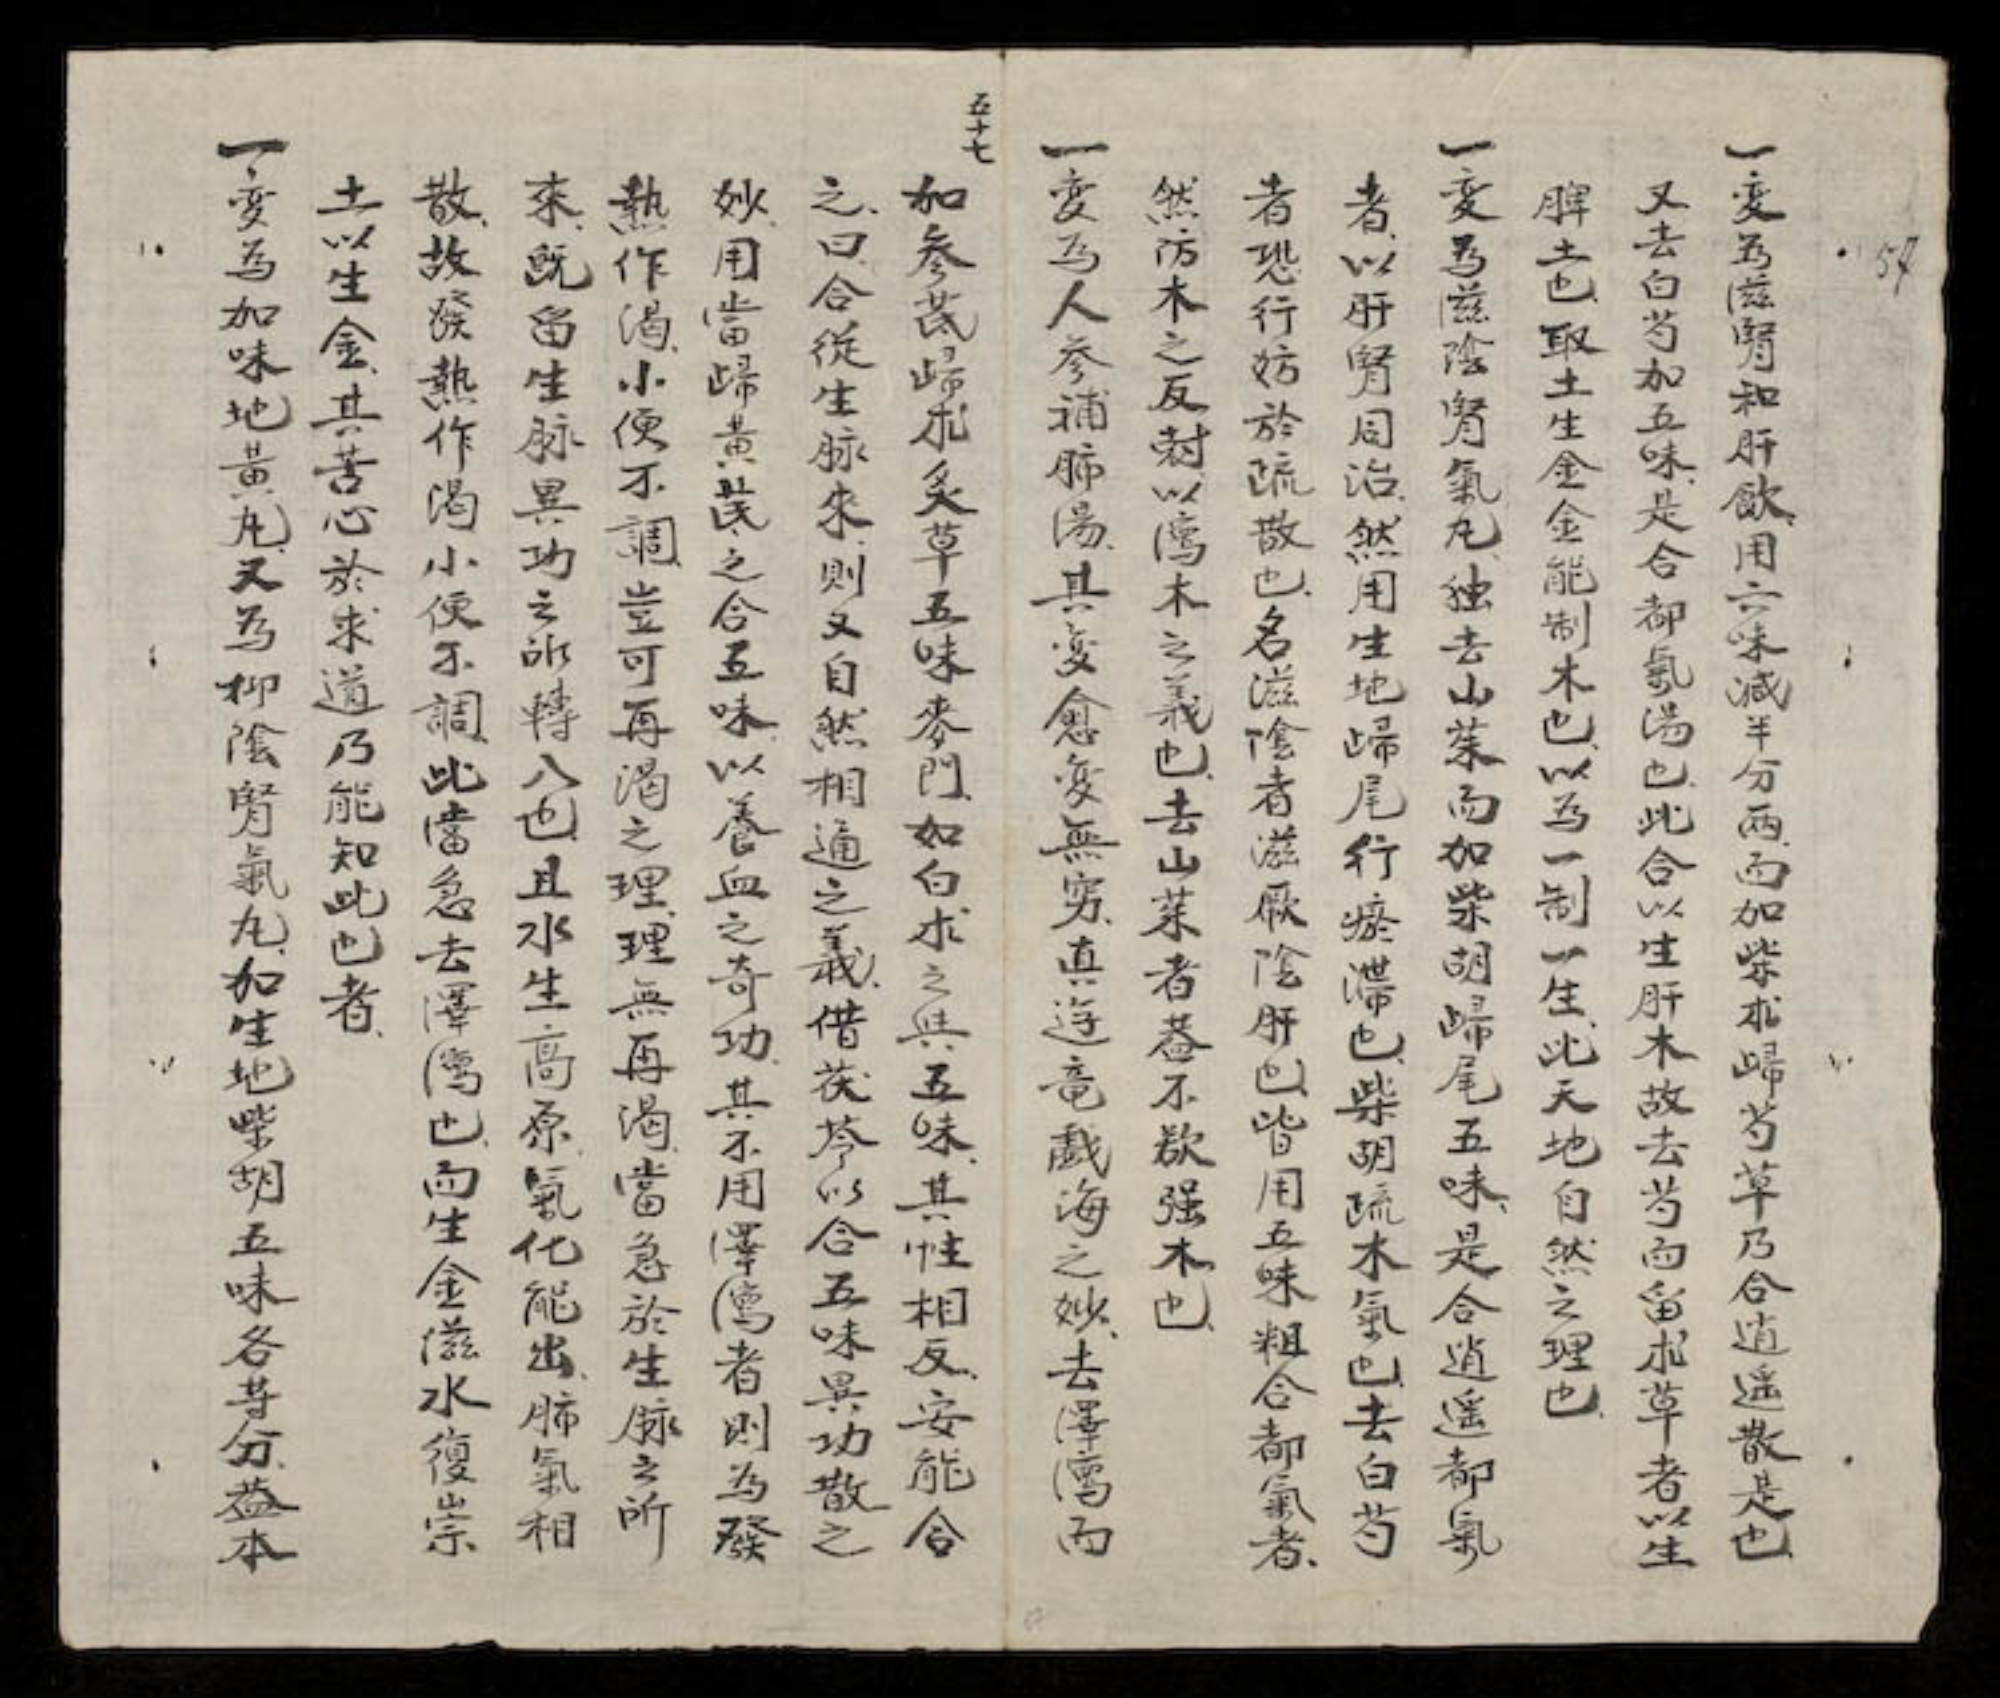 57
一変為滋腎和肝飲、用六味減半分兩、而加柴朮歸芍草乃合逍遥散是也、
又去白芍加五味、是合都氣湯也、此合以生肝木故去芍而留朮草者以生
脾土也、取土生金金能制木也、以為一制一生、此天地自然之理也、
一変為滋陰腎氣丸、独去山茱而加柴胡歸尾五味、是合逍遥都氣
者、以肝腎同治、然用生地歸尾行瘀滯也、柴胡疏木氣也、去白芍
者恐行妨於疏散也、名滋陰者滋厥陰肝也、皆用五味粗合都氣者、
然防木之反尅、以瀉木之義也、去山茱者蓋不欲强木也、
一変為人参補肺湯、其変愈変無窮、真逰竜戲海之妙、去澤瀉而
五十七
加参芪歸朮炙草五味麥門、如白朮之與五味、其性相反、安能合
之、曰、合從生脉來、則又自然相通之義、借茯苓以合五味異功散之
妙、用當歸黄芪之合五味、以養血之奇功、其不用澤瀉者則為發
熱作渴、小便不調、豈可再渴之理、理無再渴、當急於生脉之所
來、既留生脉異功之所轉八也、且水生高原、氣化能出、肺氣相
散、故發熱作渴小便不調、此當急去澤瀉也、而生金滋水復崇
土以生金、其苦心於求道乃能知此也者、
一変為加味地黄丸、又為抑陰腎氣丸、加生地柴胡五味各等分、蓋本